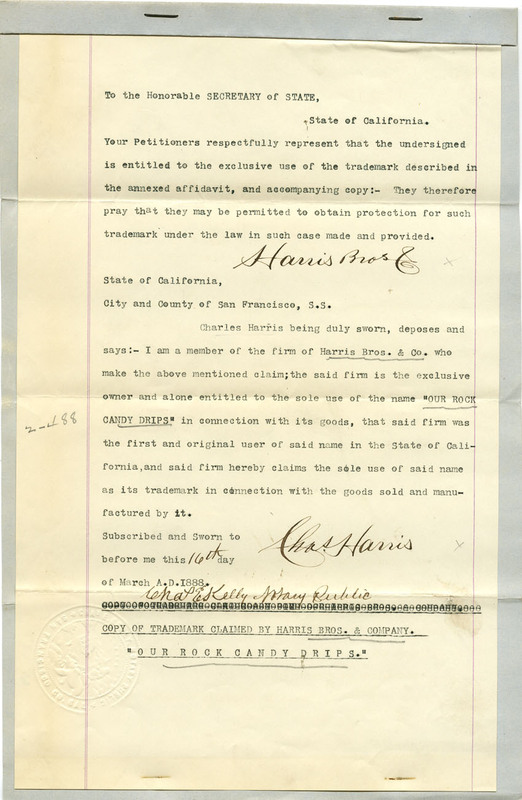 To the Honorable SECRETARY of STATE,
State of California.
Your Petitioners respectfully represent that the undersigned
is entitled to the exclusive use of the trademark described in
the annexed affidavit, and accompanying copy:- They therefore
pray that they may be permitted to obtain protection for such
trademark under the law in such case made and provided.
Harris Bros &
State of California,
City and County of San Francisco, S.S.
Charles Harris being duly sworn, deposes and
says:- I am a member of the firm of Harris Bros. & Co. who
make the above mentioned claim;the said firm is the exclusive
owner and alone entitled to the sole use of the name "OUR ROCK
CANDY DRIPS" in connection with its goods, that said firm was
the first and original user of said name in the State of Cali-
fornia,and said firm hereby claims the sole use of said name
as its trademark in connection with the goods sold and manu-
factured by it.
Subscribed and Sworn to
Chas Harris
before me this 16th day
of March A.D.I888.
Chas E Kelly Notary Public
COPY OF TRADEMARK CLAIMED BY HARRIS BROS. & COMPANY.
"OUR ROCK CANDY DRIPS."